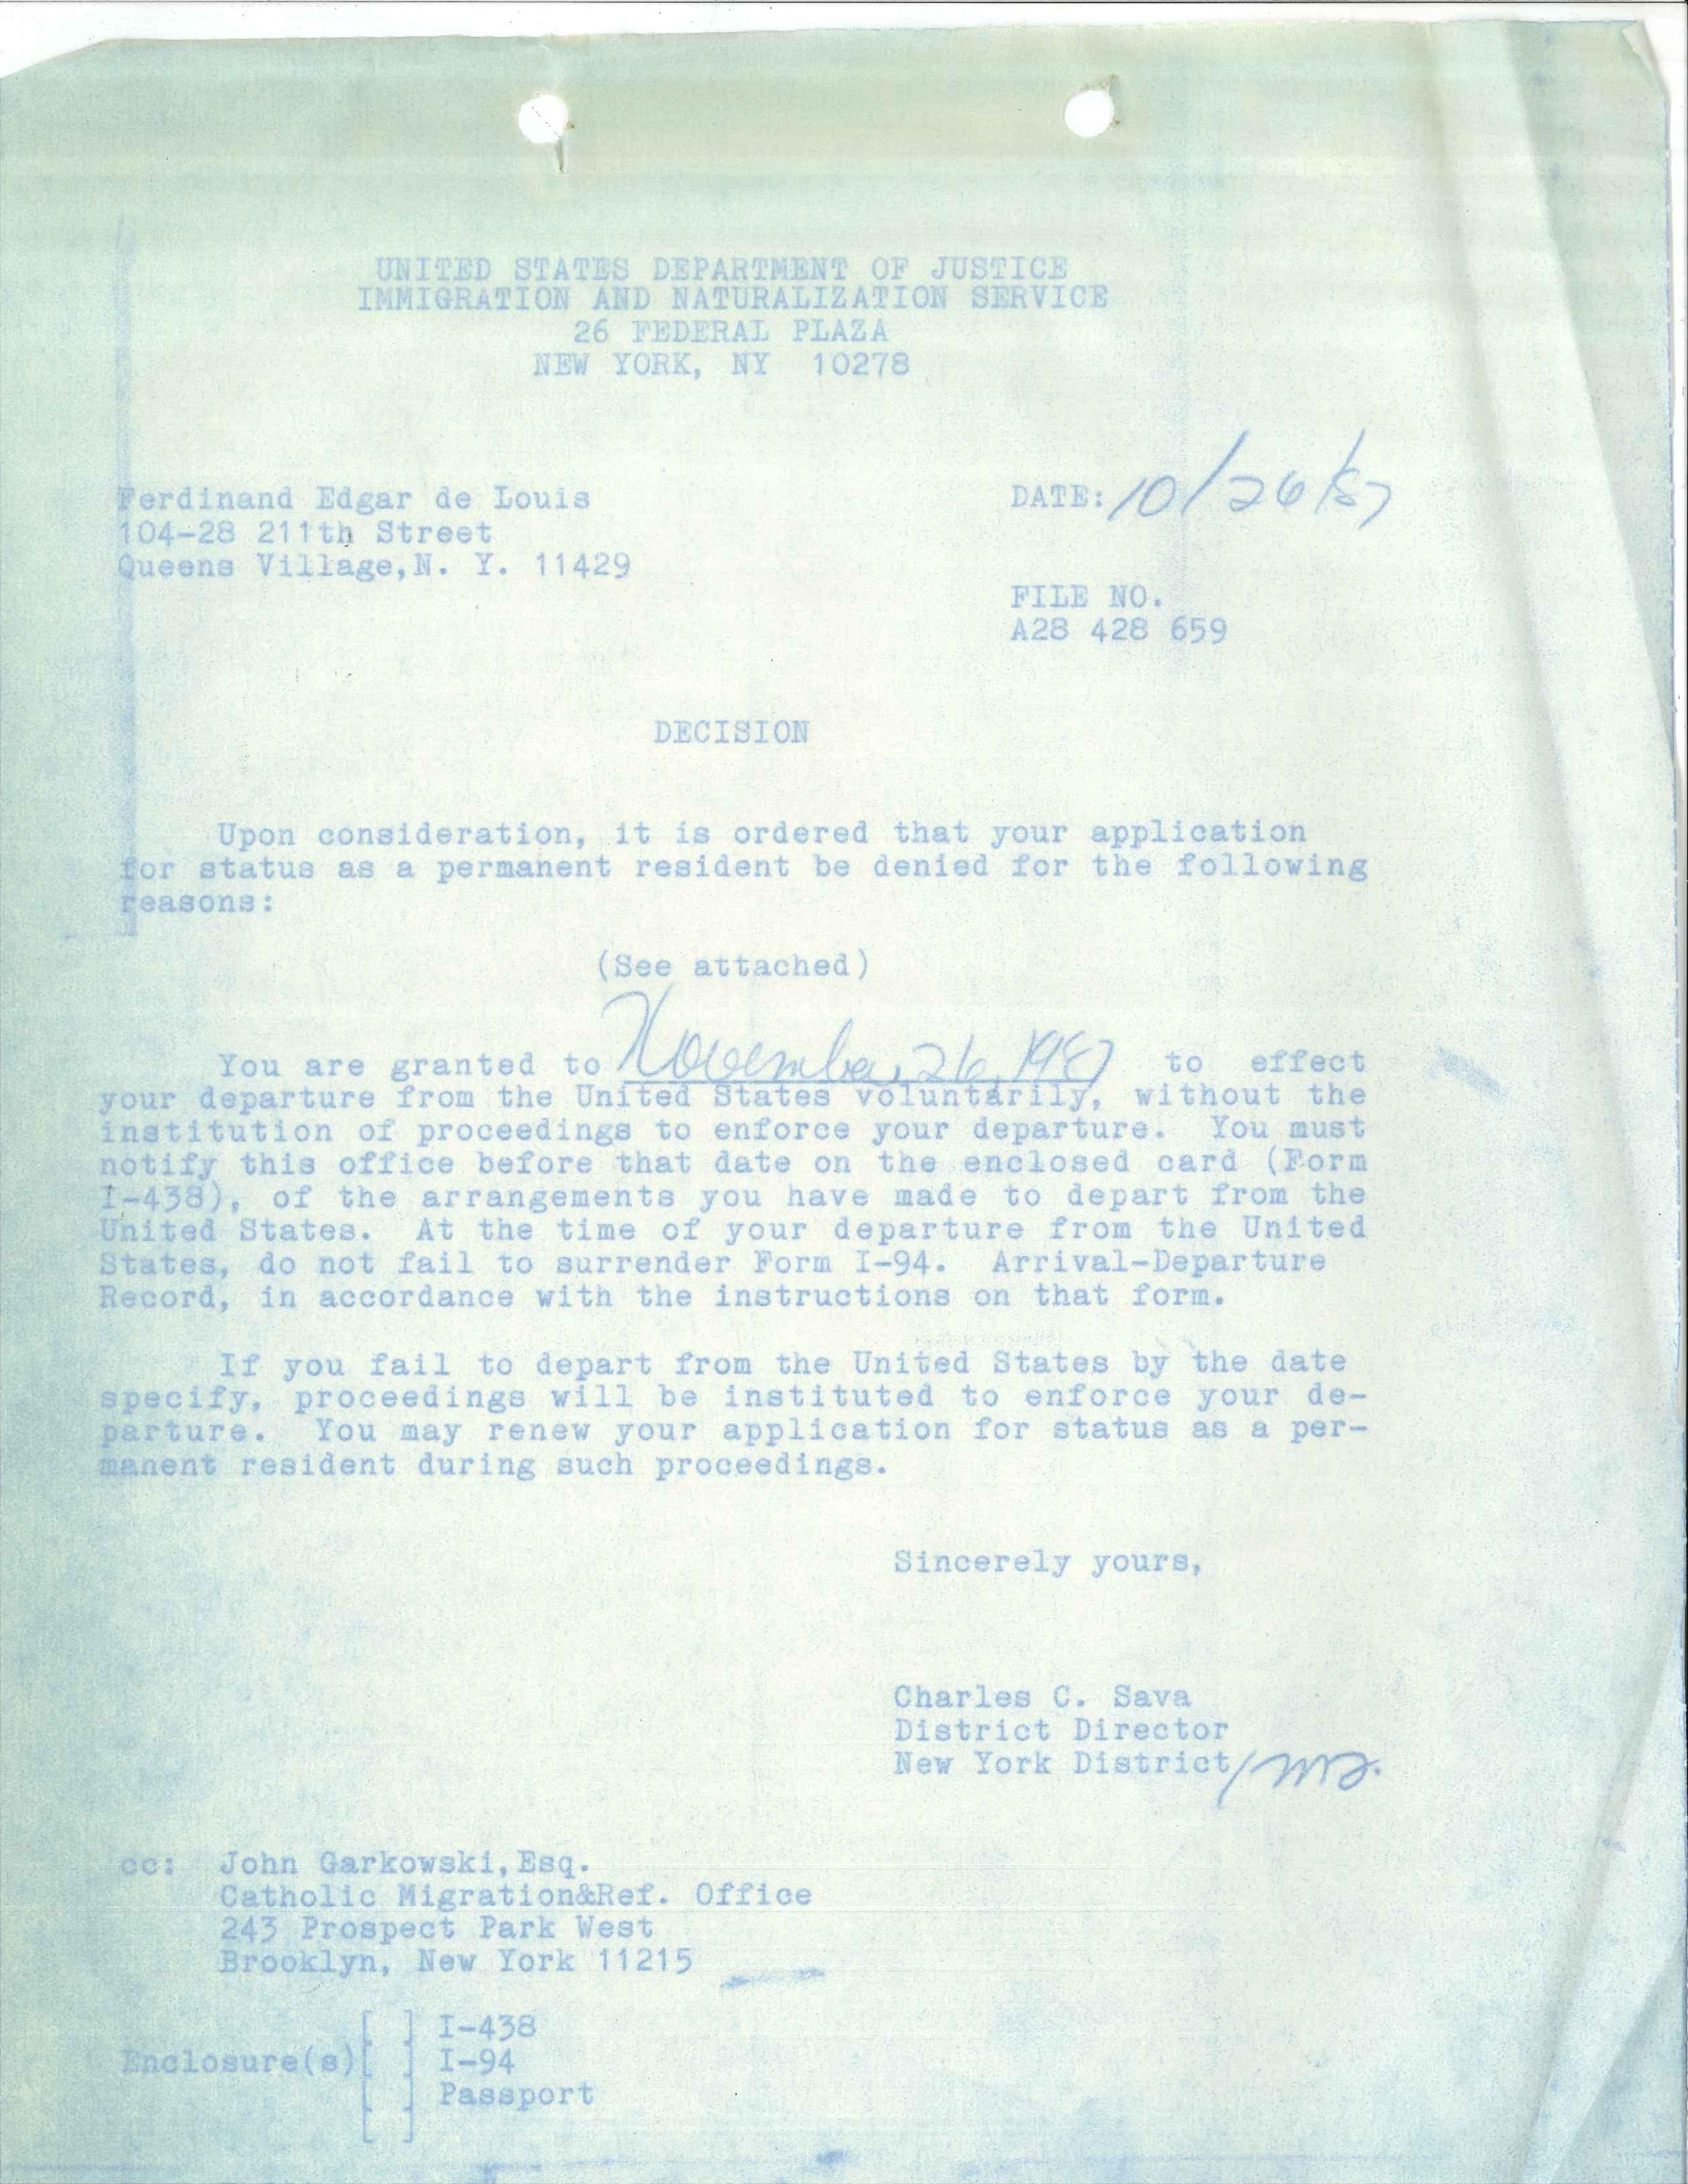 UNITED STATES DEPARTMENT OF JUSTICE
IMMIGRATION AND NATURALIZATION SERVICE
26 FEDERAL PLAZA
NEW YORK, NY 10278
Ferdinand Edgar de Louis
104-28 211th Street
Queens Village, N. Y. 11429
DATE: 10/26/87
FILE NO.
A28 428 659
DECISION
Upon consideration, it is ordered that your application
for status as a permanent resident be denied for the following
reasons:
(See attached)
You are granted to November, 26, 1987 to effect
your departure from the United States voluntarily, without the
institution of proceedings to enforce your departure. You must
notify this office before that date on the enclosed card (Form
I-438), of the arrangements you have made to depart from the
United States. At the time of your departure from the United
States, do not fail to surrender Form I-94. Arrival-Departure
Record, in accordance with the instructions on that form.
If you fail to depart from the United States by the date
specify, proceedings will be instituted to enforce your de-
parture. You may renew your application for status as a per-
manent resident during such proceedings.
Sincerely yours,
Charles C. Sava
District Director
New York District/
cc: John Garkowski, Esq.
Catholic Migration&Ref. Office
243 Prospect Park West
Brooklyn, New York 11215
[ ] I-438
Enclosure(s)[ ] I-94
[ ] Passport
[ ]